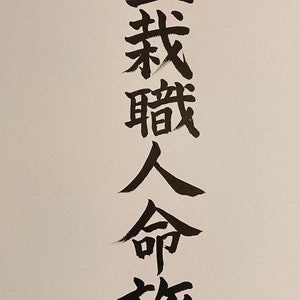 栽職人命